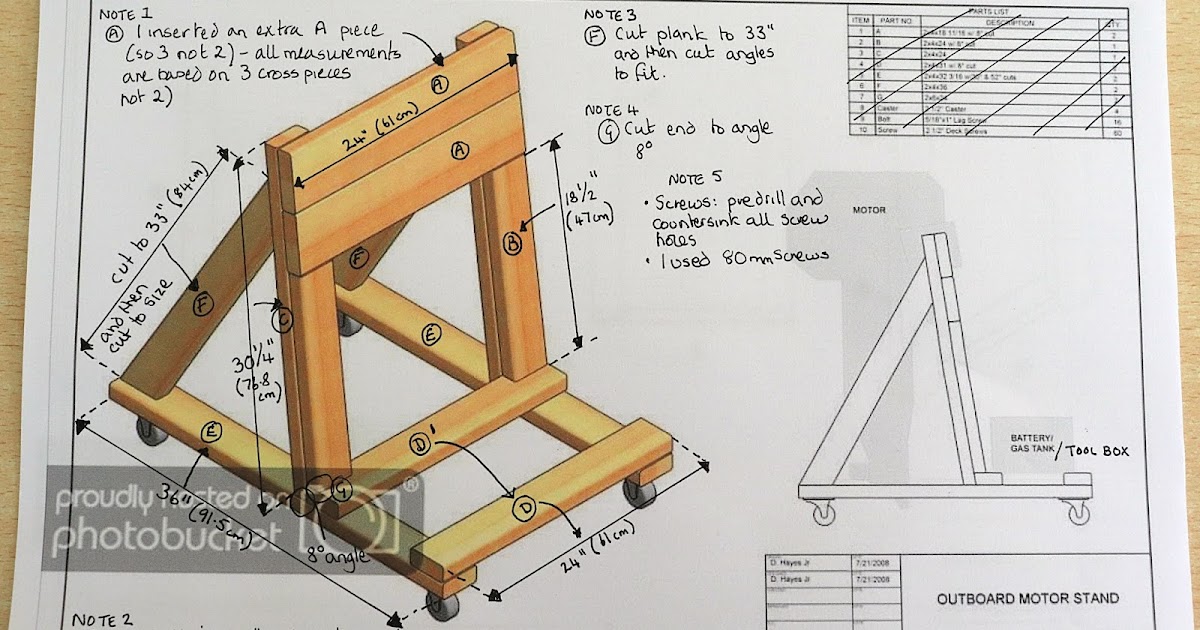 NOTE 1
Ⓐ I inserted an extra A piece
(so 3 not 2) - all measurements
are based on 3 cross pieces
not 2)
NOTE 3
Ⓕ Cut plank to 33"
and then cut angles
to fit.
NOTE 4
Ⓖ Cut end to angle
8°
NOTE 5
• Screws: predrill and
countersink all screw
holes
• I used 80mm screws
PARTS LIST
ITEM PART NO. DESCRIPTION QTY
1 A 2x4x18 11/16 w/ 8° cut 2
2 B 2x4x24 w/ 8° cut 2
3 C 2x4x24 1
4 2x4x31 w/ 8° cut 2
5 E 2x4x32 3/16 w/ & 52° cuts 2
6 F 2x4x36 2
7 G
8 Caster 2 1/2" Caster 4
9 Bolt 5/16"x1" Lag Screw 16
10 Screw 2 1/2" Deck Screws 60
A
24" (61cm)
A
18 1/2"
(47cm)
B
cut to 33" (84cm)
and then
cut to size
F
F
C
30 1/4"
(76.8
cm)
E
E
D'
D
G
36" (91.5cm)
8° angle
24" (61cm)
MOTOR
BATTERY/
GAS TANK / TOOL BOX
proudly hosted on
photobucket
®
D. Hayes Jr 7/21/2008
D. Hayes Jr 7/21/2008
OUTBOARD MOTOR STAND
NOTE 2